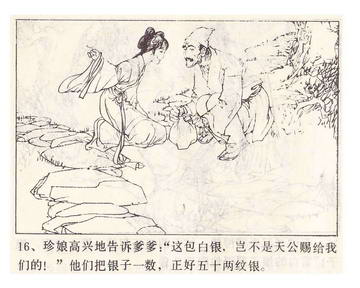 16、珍娘高兴地告诉爹爹：“这包白银，岂不是天公赐给我
们的！”他们把银子一数，正好五十两纹银。